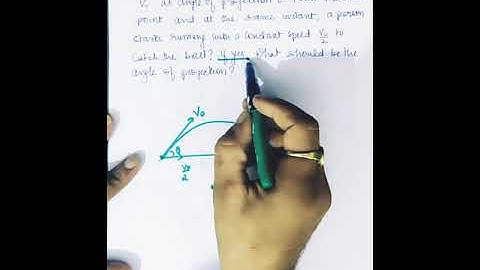 Vo at angle of projection
point and at the same instant, a person
starts running with a constant speed Vo/2 to
Catch the ball? If yes, what should be the
angle of projection?
Vo
θ
Vo/2